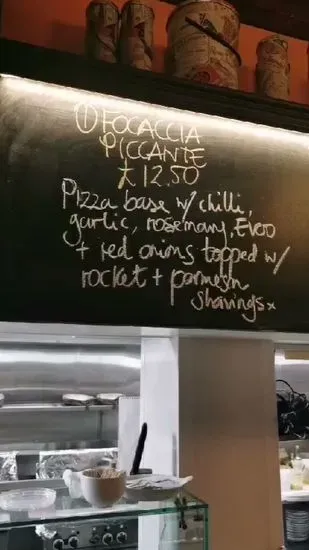 ① FOCACCIA
PICCANTE
£12.50
Pizza base w/ chilli,
garlic, rosemary, Evoo
+ red onions topped w/
rocket + parmesn
shavings x